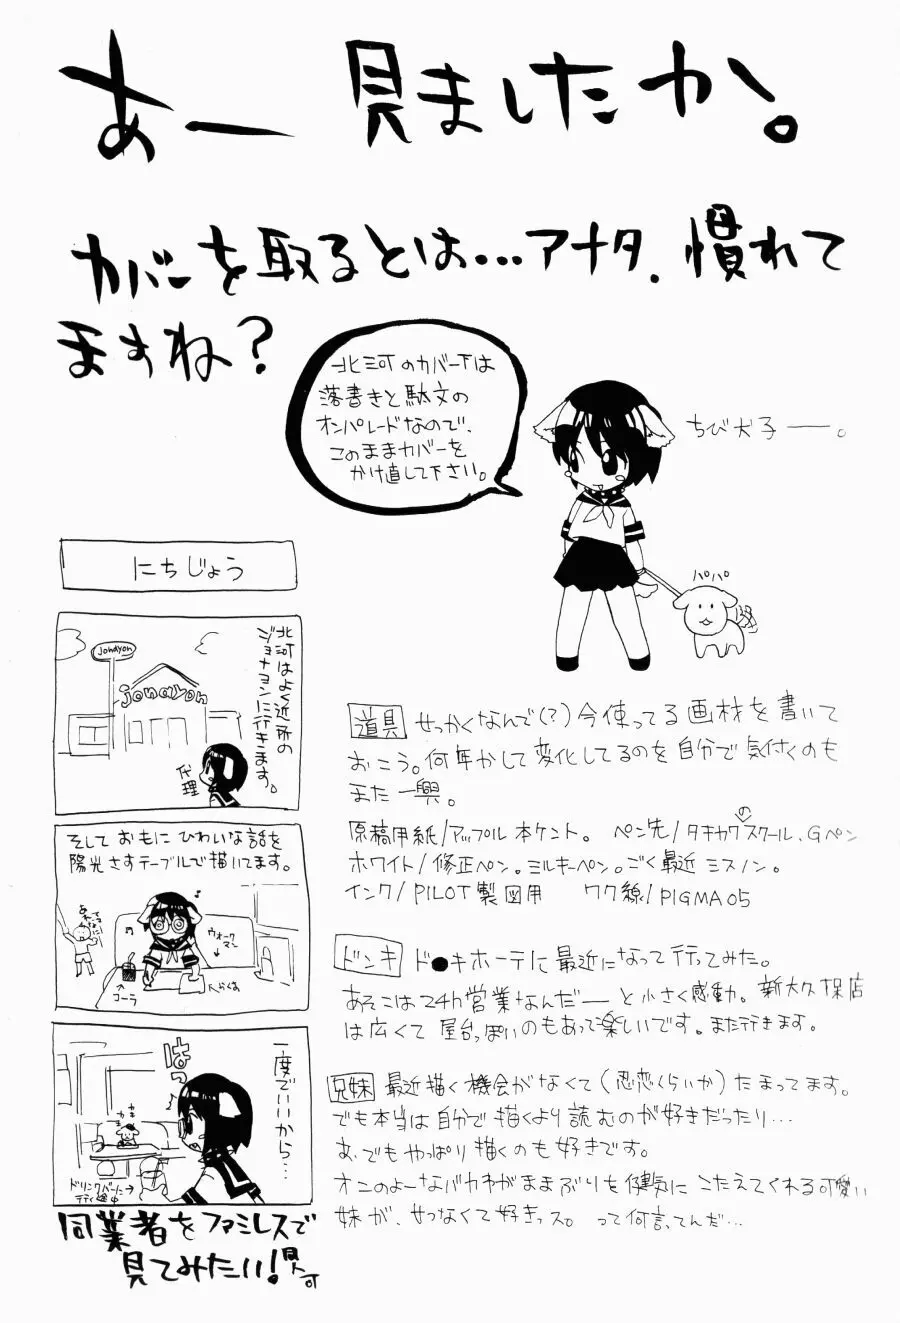 あー 見ましたか。
カバーを取るとは…アナタ、慣れて
ますね？
北河のカバー下は
落書きと駄文の
オンパレードなので、
このままカバーを
かけ直して下さい。
ちび犬子ー。
パパパ
にちじょう
北河はよく近所の
ジョナヨンに行きます。
jonayon
jonayon
代理
そしておもに ひわいな話を
陽光さすテーブルで描いてます。
ウォーク
マン
コーラ
一度でいいから…
はっ
カキ
カキ
ドリンクバーに→
行く途中
同業者をファミレスで
見てみたい！
道具 せっかくなんで(？)今使ってる画材を書いて
おこう。何年かして変化してるのを自分で気付くのも
また一興。
原稿用紙/アップル本ケント。 ペン先/タチカワのスクール、Gペン
ホワイト/修正ペン。ミルキーペン。ごく最近ミスノン。
インク/PILOT製図用 ワク線/PIGMA05
ドンキ ド●キホーテに最近になって行ってみた。
あそこは24h営業なんだーと小さく感動。新大久保店
は広くて屋台っぽいのもあって楽しいです。また行きます。
兄妹 最近描く機会がなくて(忍恋くらいか)たまってます。
でも本当は自分で描くより読むのが好きだったり…
あ、でもやっぱり描くのも好きです。
オニのよーなバカわがままぶりを健気にこたえてくれる可愛い
妹が、せつなくて好きっス。って何言ってんだ…